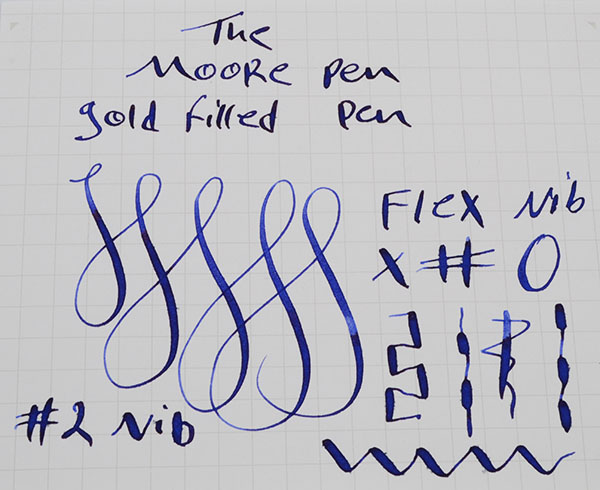 The
Moore pen
gold filled pen
Flex Nib
x # 0
#2 Nib